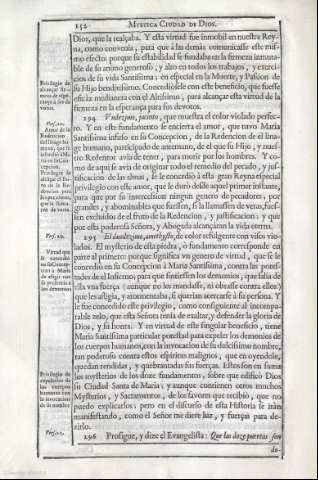 152 MYSTICA CIUDAD DE DIOS.
Dios, que la realçaba. Y esta virtud fue inmobil en nuestra Rey-
na, como convenia, para que à las demàs comunicasse este mis-
mo efecto: porque su estabilidad se fundaba en la firmeza inmuta-
ble de su animo generoso, y alto en todos los trabajos, y exerci-
cios de su vida Santissima; en especial en la Muerte, y Passion de
su Hijo benditissimo. Concediósele con este beneficio, que fuesse
eficàz medianera con el Altissimo, para alcançar esta virtud de la
firmeza en la esperança para sus devotos.
294 Vndezimo, jacinto, que muestra el color violado perfec-
to. Y en este fundamento se encierra el amor, que tuvo Maria
Santissima infuso en su Concepcion, de la Redencion del el lina-
ge humano, participado de antemano, de el que su Hijo, y nues-
tro Redentor avia de tener, para morir por los hombres. Y co-
mo de aqui se avia de originar todo el remedio del pecado, y jus-
tificacion de las almas, se le concediò à esta gran Reyna especial
privilegio con este amor, que le durò desde aquel primer instante,
para que por su intercession ningun genero de pecadores, por
grandes, y abominables que fuessen, si la llamassen de veras, fues-
sen excluidos de el fruto de la Redencion, y justificacion; y que
por esta poderosa Señora, y Abogada alcançaran la vida eterna.
295 El duodezimo, amethysto, de color refulgente con visos vio-
lados. El mysterio de esta piedra, ò fundamento corresponde en
parte al primero: porque significa vn genero de virtud, que se le
concediò en su Concepcion à Maria Santissima, contra las potes-
tades de el Infierno; para que sintiessen los demonios, que salia de
ella vna fuerça (aunque no los mandasse, ni obrasse contra ellos)
que les afligia, y atormentaba, si querian acercarse à su persona. Y
le fue concedido este privilegio, como consiguiente al incompa-
rable zelo, que esta Señora tenia de exaltar, y defender la gloria de
Dios, y su honra. Y en virtud de este singular beneficio, tiene
Maria Santissima particular potestad para expeler los demonios de
los cuerpos humanos, con la invocacion de su dulcissimo nombre,
tan poderoso contra estos espiritus malignos, que en oyendole,
quedan rendidas, y quebrantadas sus fuerças. Estos son en suma
los mysterios de los doze fundamentos, sobre que edificò Dios
su Ciudad Santa de Maria; y aunque contienen otros muchos
Mysterios, y Sacramentos, de los favores que recibiò, que no
puedo explicarlos: pero en el discurso de esta Historia se iràn
manifestando, como el Señor me diere luz, y fuerças para de-
zirlo.
296 Prosigue, y dize el Evangelista: Que las doze puertas son
do-
Privilegio de
alcançar fir-
meza de espe-
rança à sus de-
votos.
Vers. 20.
Amor de la
Redencion
del linage hu-
mano, que
Vers. 20.
Virtud que
Privilegio de
expeler los de
los cuerpos
humanos con
la invocacion
de su nombre
Vers. 21.